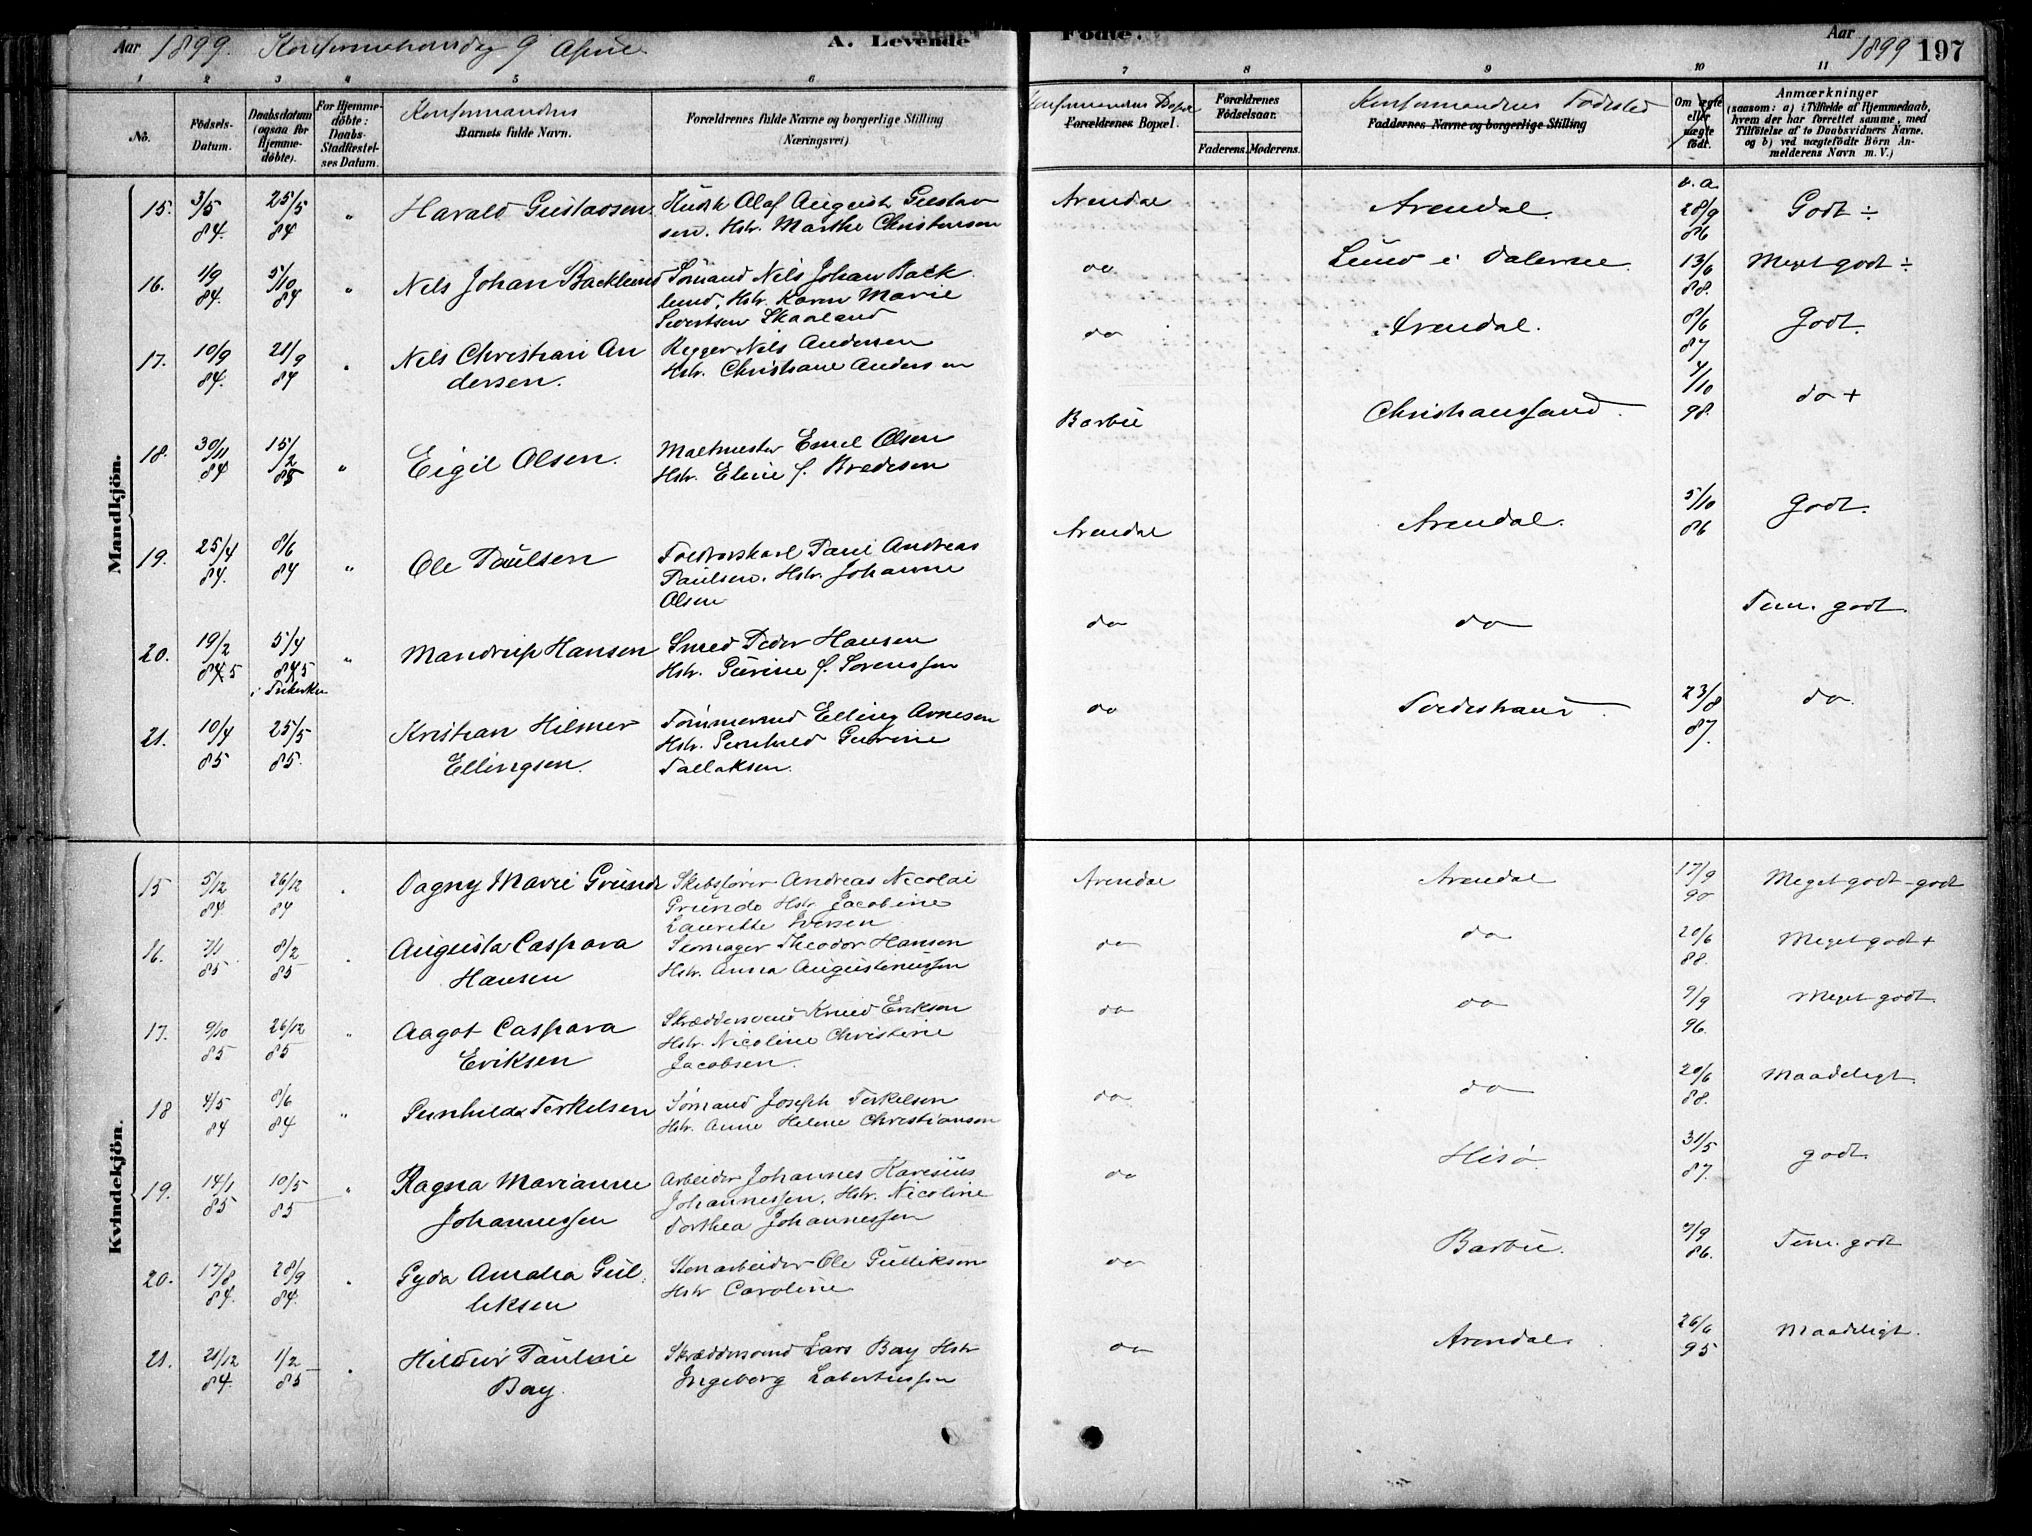 Aar 1899. Konfirmationsdag 9 April
A. Levende Födte.
Aar 1899 197
1 2 3 4 5 6 7 8 9 10 11
No.
Födsels-Datum.
Daabsdatum (ogsaa for Hjemme-döbte).
For Hjemme-döbte: Daabs-Stadfæstel-ses Datum.
Konfirmandens
Barnets fulde Navn.
Forældrenes fulde Navne og borgerlige Stilling
(Næringsvei)
Konfirmandens Bopæl
Forældrenes Bopæl.
Forældrenes Födselsaar.
Faderens. Moderens.
Konfirmandens Fødested
Faddernes Navne og borgerlige Stilling
Om ægte eller uægte födt.
Anmærkninger
(saasom: a) i Tilfælde af Hjemmedaab,
hvem der har forrettet samme, med
Tilföielse af to Daabsvidners Navne.
og b) ved uægtefödte Börn An-
melderens Navn m. V.)
Mandkjön.
15. 3/5 84. 25/5 84 " Harald Gustavsen. Kudsk Olaf August Gustav
sen. Hstr. Marthe Christensen Arendal Arendal. v. a. 28/9 86 Godt ÷
16. 1/9 84. 5/10 84 " Nels Johan Backlund Sömand Nels Johan Back
lund, Hstr. Karen Marie
Sivertsen Skaaland do Lund i Dalerne. 13/6 88. Meget godt ÷
17. 10/9 84. 21/9 84 " Nels Christian An
dersen. Rigger Nils Andersen
Hstr. Christiane Andersen do Arendal. 8/6 87 Godt.
18. 30/11 84 15/2 85 " Eigil Olsen. Maltmester Emil Olsen
Hstr. Eline f. Bredesen Barbu Christianssand. 4/10 98. do +
19. 25/4 84. 8/6 84 " Ole Paulsen Toldvaskarl Paul Andreas
Paulsen. Hstr. Johanne
Olsen Arendal Arendal. 5/10 86 Godt.
20. 19/2 845 5/4 845 i Frikirken " Mandrup Hansen Smed Peder Hansen
Hstr. Gurine f. Sørenssen do do Tem. godt.
21. 10/4 85 25/5 85. Kristian Hilmer
Ellingsen. Tömmermd Elling Arnesen
Hstr. Gunhild Gurine
Tallaksen. do Tvedestrand. 23/8 87. do.
Kvindekjön.
15 5/12 84 26/12 84 " Dagny Marie Grunde Skibsfører Andreas Nicolai
Grunde Hstr. Jacobine
Laurette Iversen Arendal Arendal 17/9 90 Meget godt - godt
16. 7/1 85 8/2 85 " Augusta Caspara
Hansen Skomager Theodor Hansen
Hstr. Anna Augustinussen do do 20/6 88. Meget godt +
17. 9/10 85 26/12 85 " Aagot Caspara
Eriksen Skræddersvend Knud Eriksen
Hstr. Nicoline Christine
Jacobsen. do do 7/9 96. Meget godt.
18 4/5 84 8/6 84 " Gunhilda Terkelsen Sömand Joseph Terkelsen
Hstr. Anne Helene Christiansen do do 20/6 88. Maadeligt.
19. 14/1 85 10/5 85 " Ragna Marianne
Johannessen Arbeider Johannes Karesius
Johannessen. Hstr. Nicoline
Dorthea Johannessen do Hisø. 31/5 87. godt.
20. 17/8 84. 28/9 84. " Gyda Amalia Gul
liksen Stenarbeider Ole Gulliksen
Hstr Caroline do Barbu. 7/9 86. Tem. godt
21. 21/12 84. 1/2 85 " Hildur Pauline
Bay. Skræddersvend Lars Bay Hstr
Ingeborg Labertussen do Arendal. 26/6 95 Maadeligt.